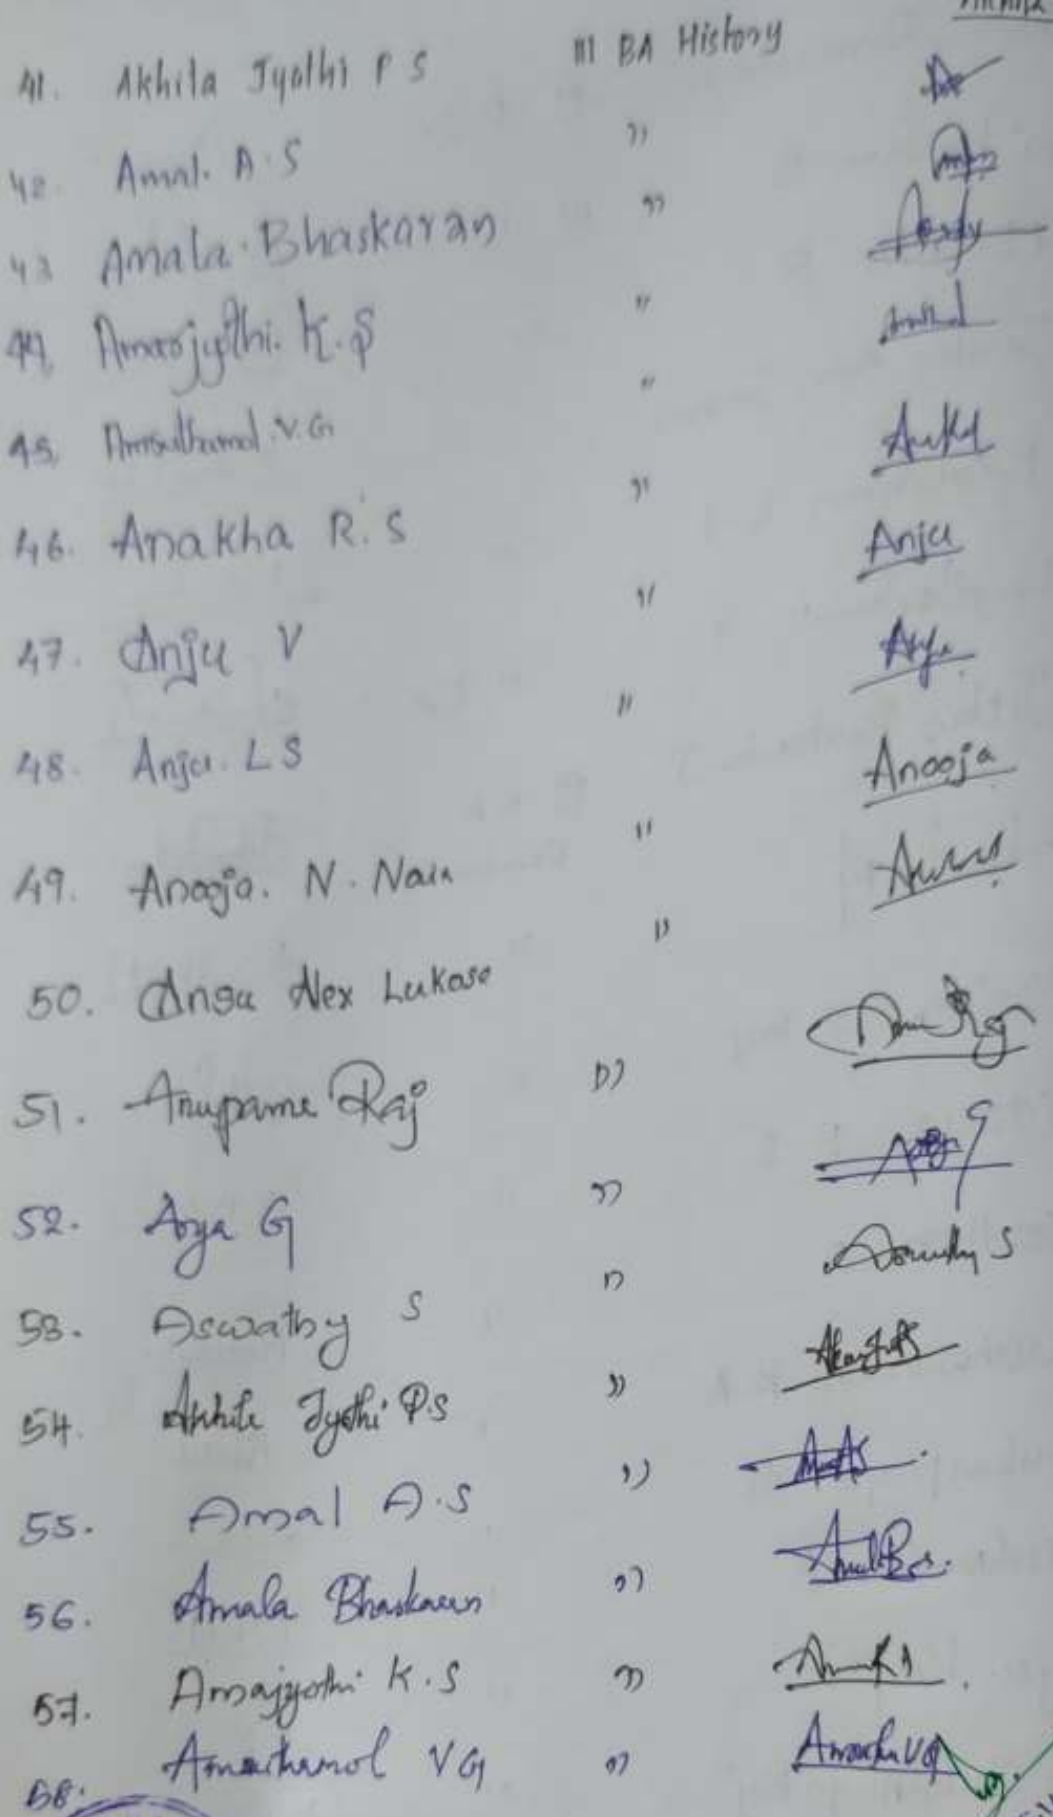 41. Akhila Jyothi P S III BA History
42. Amal. A. S "
43 Amala. Bhaskaran "
44. Amarjyothi. K. S "
45. Amruthamol. V. G "
46. Anakha R. S " Anju
47. Anju V "
48. Anju. L S " Anooja
49. Anooja. N. Nair "
50. Ansu Alex Lukose "
51. Anupama Raj "
52. Arya G "
53. Aswathy S " Aswathy S
54. Akhila Jyothi P S "
55. Amal A. S "
56. Amala Bhaskaran "
57. Amajyothi K. S "
58. Amruthamol V G "